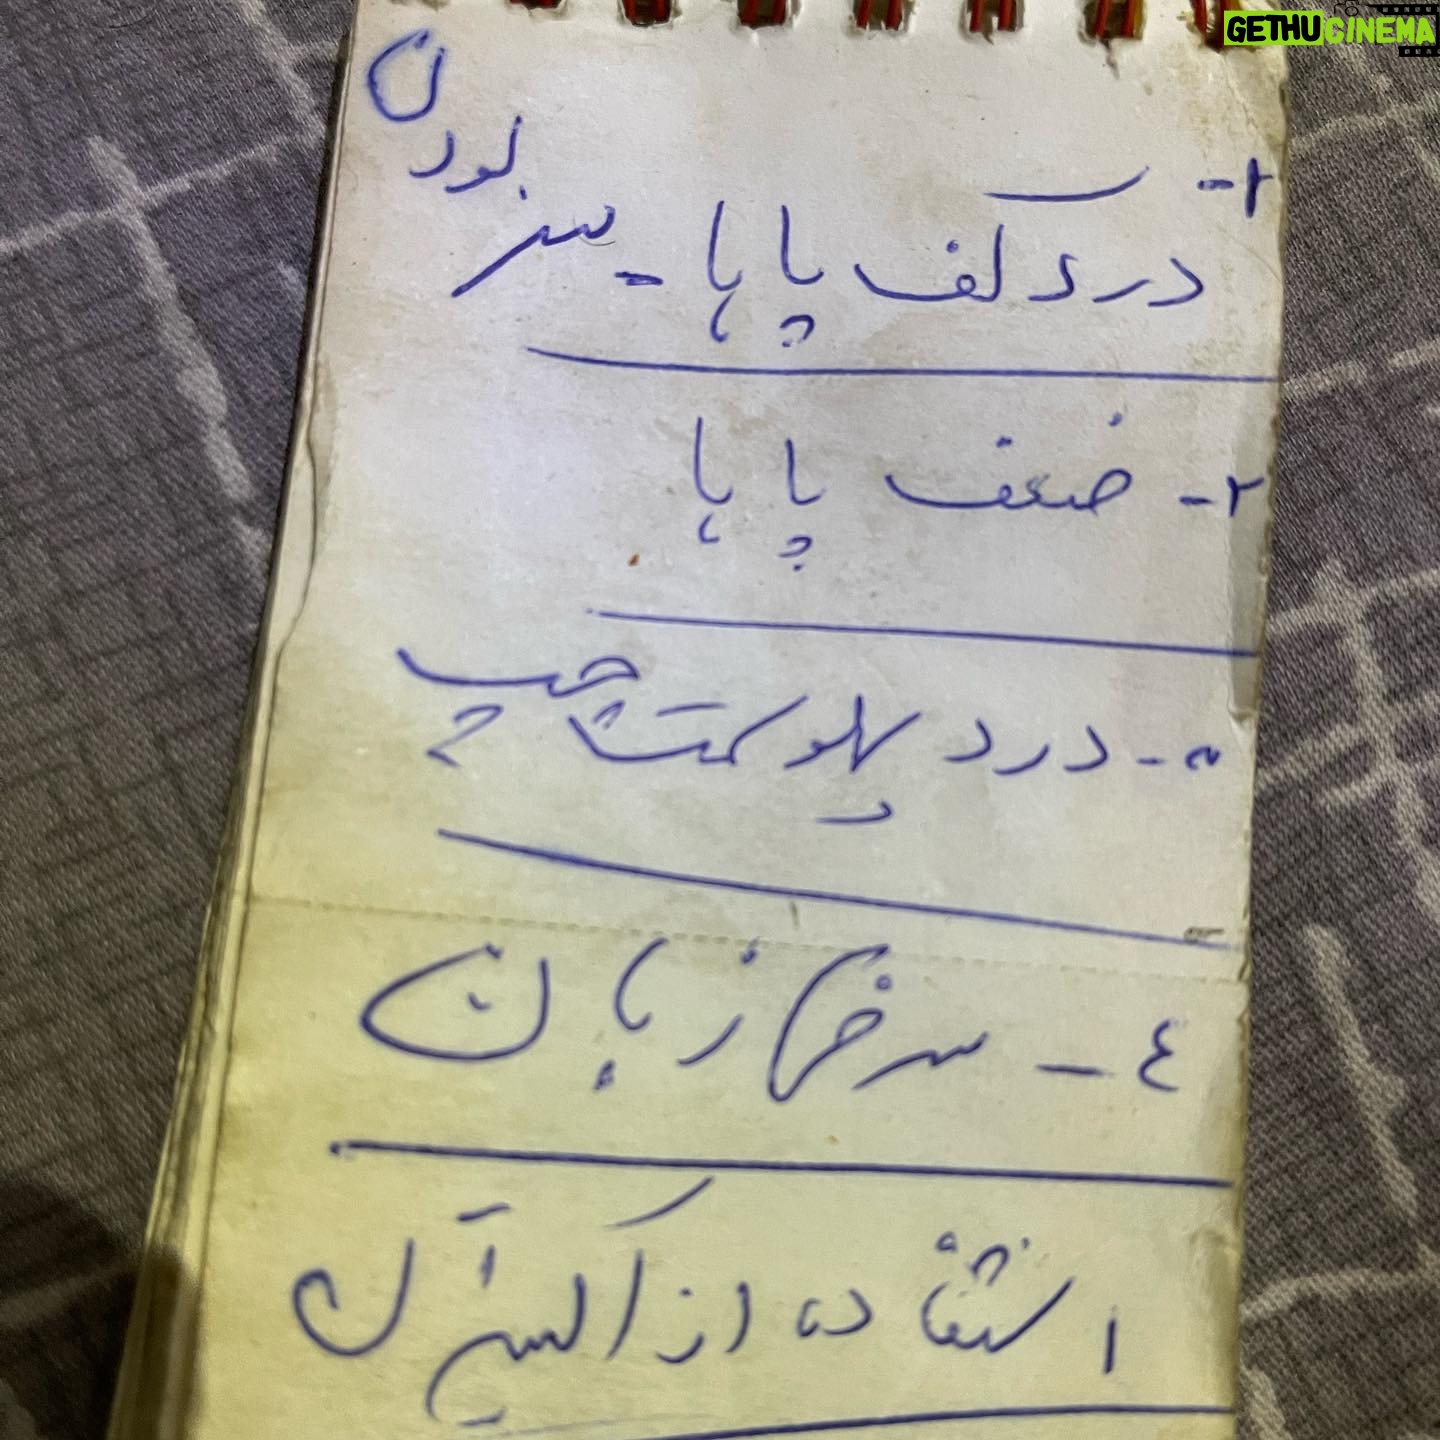 GETHUCINEMA
۱- درد کف پاها - سِر
بودن
۲- ضعف پاها
۳- درد پهلو سمت چپ
٤- سرخی زبان
استفاده از